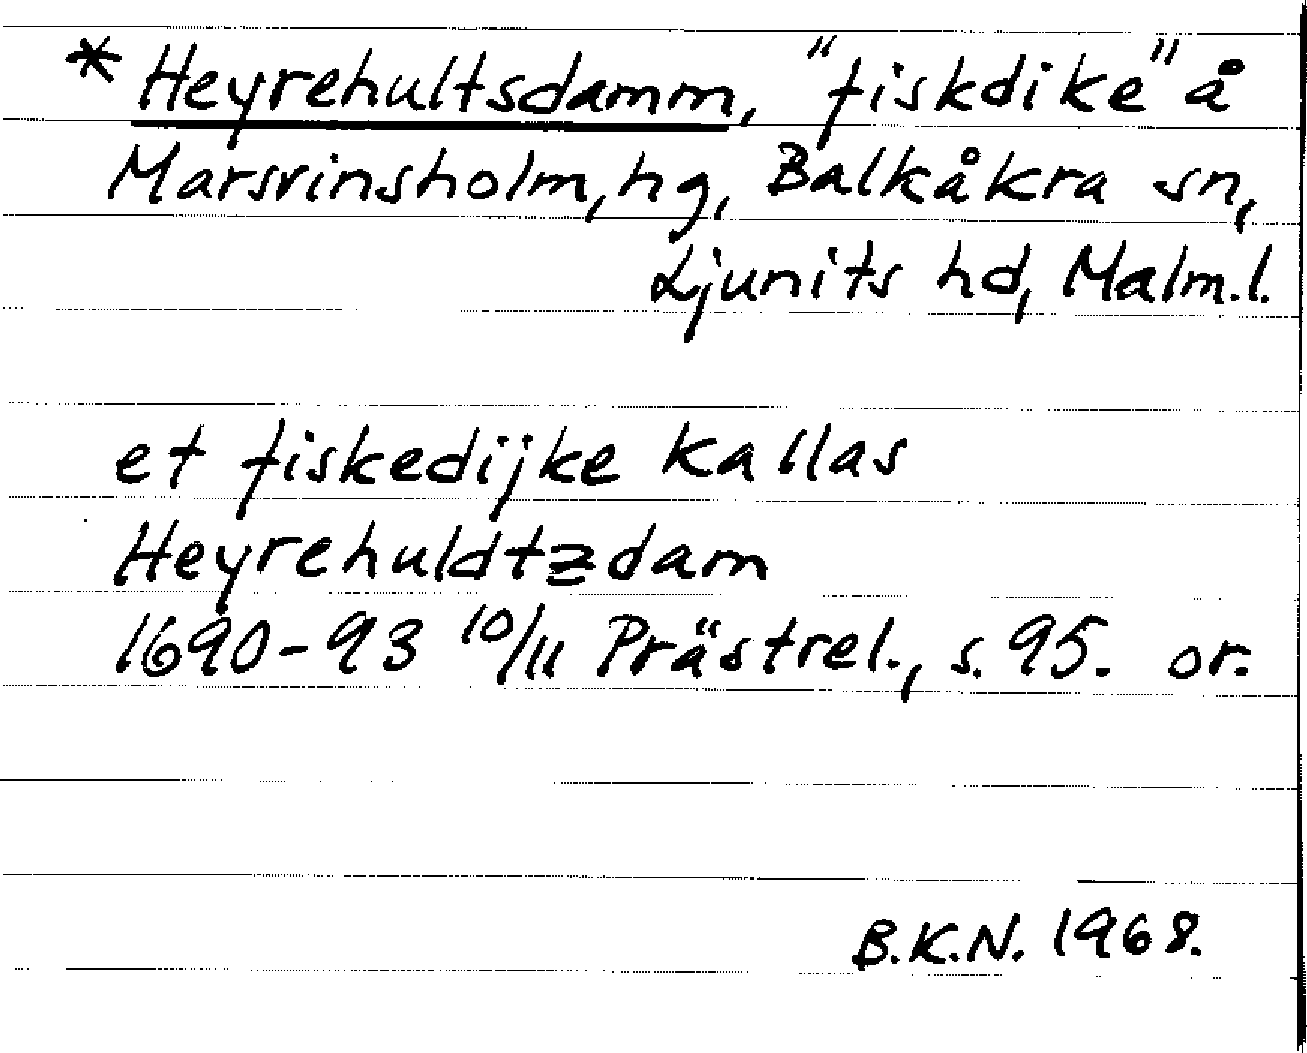 * Heyrehultsdamm, "fiskdike" å
Marsvinsholm, hg, Balkåkra sn,
Ljunits hd, Malm.l.
et fiskedijke kallas
Heyrehuldtzdam
1690-93 10/11 Prästrel., s. 95. or.
B.K.N. 1968.